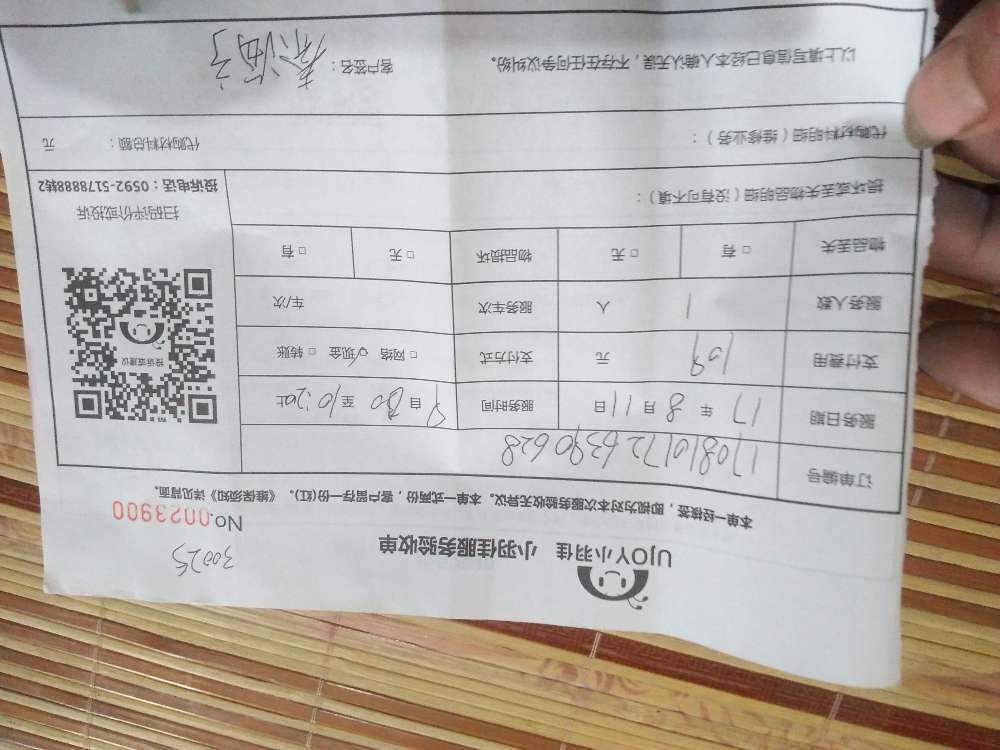 UJOY小羽佳 小羽佳服务验收单
30025
No.0023900
本单一经核签，即视为对本次服务验收无异议。本单一式两份，客户留存一份(红)。《维保须知》详见背面。
订单编号 1708101726390628
服务日期 17年8月11日 服务时间 9自30至10:20止
支付费用 109元 支付方式 □网络 ☑现金 □转账
服务人数 1人 服务车次 车/次
物品丢失 □有 □无 物品损坏 □无 □有
投诉或建议
扫码评价或投诉
投诉电话：0592-5178888转2
损坏或丢失物品明细（没有可不填）：
代购材料明细（维修业务）： 代购材料总额： 元
以上填写信息已经本人确认无误，不存在任何争议纠纷。 客户签名：